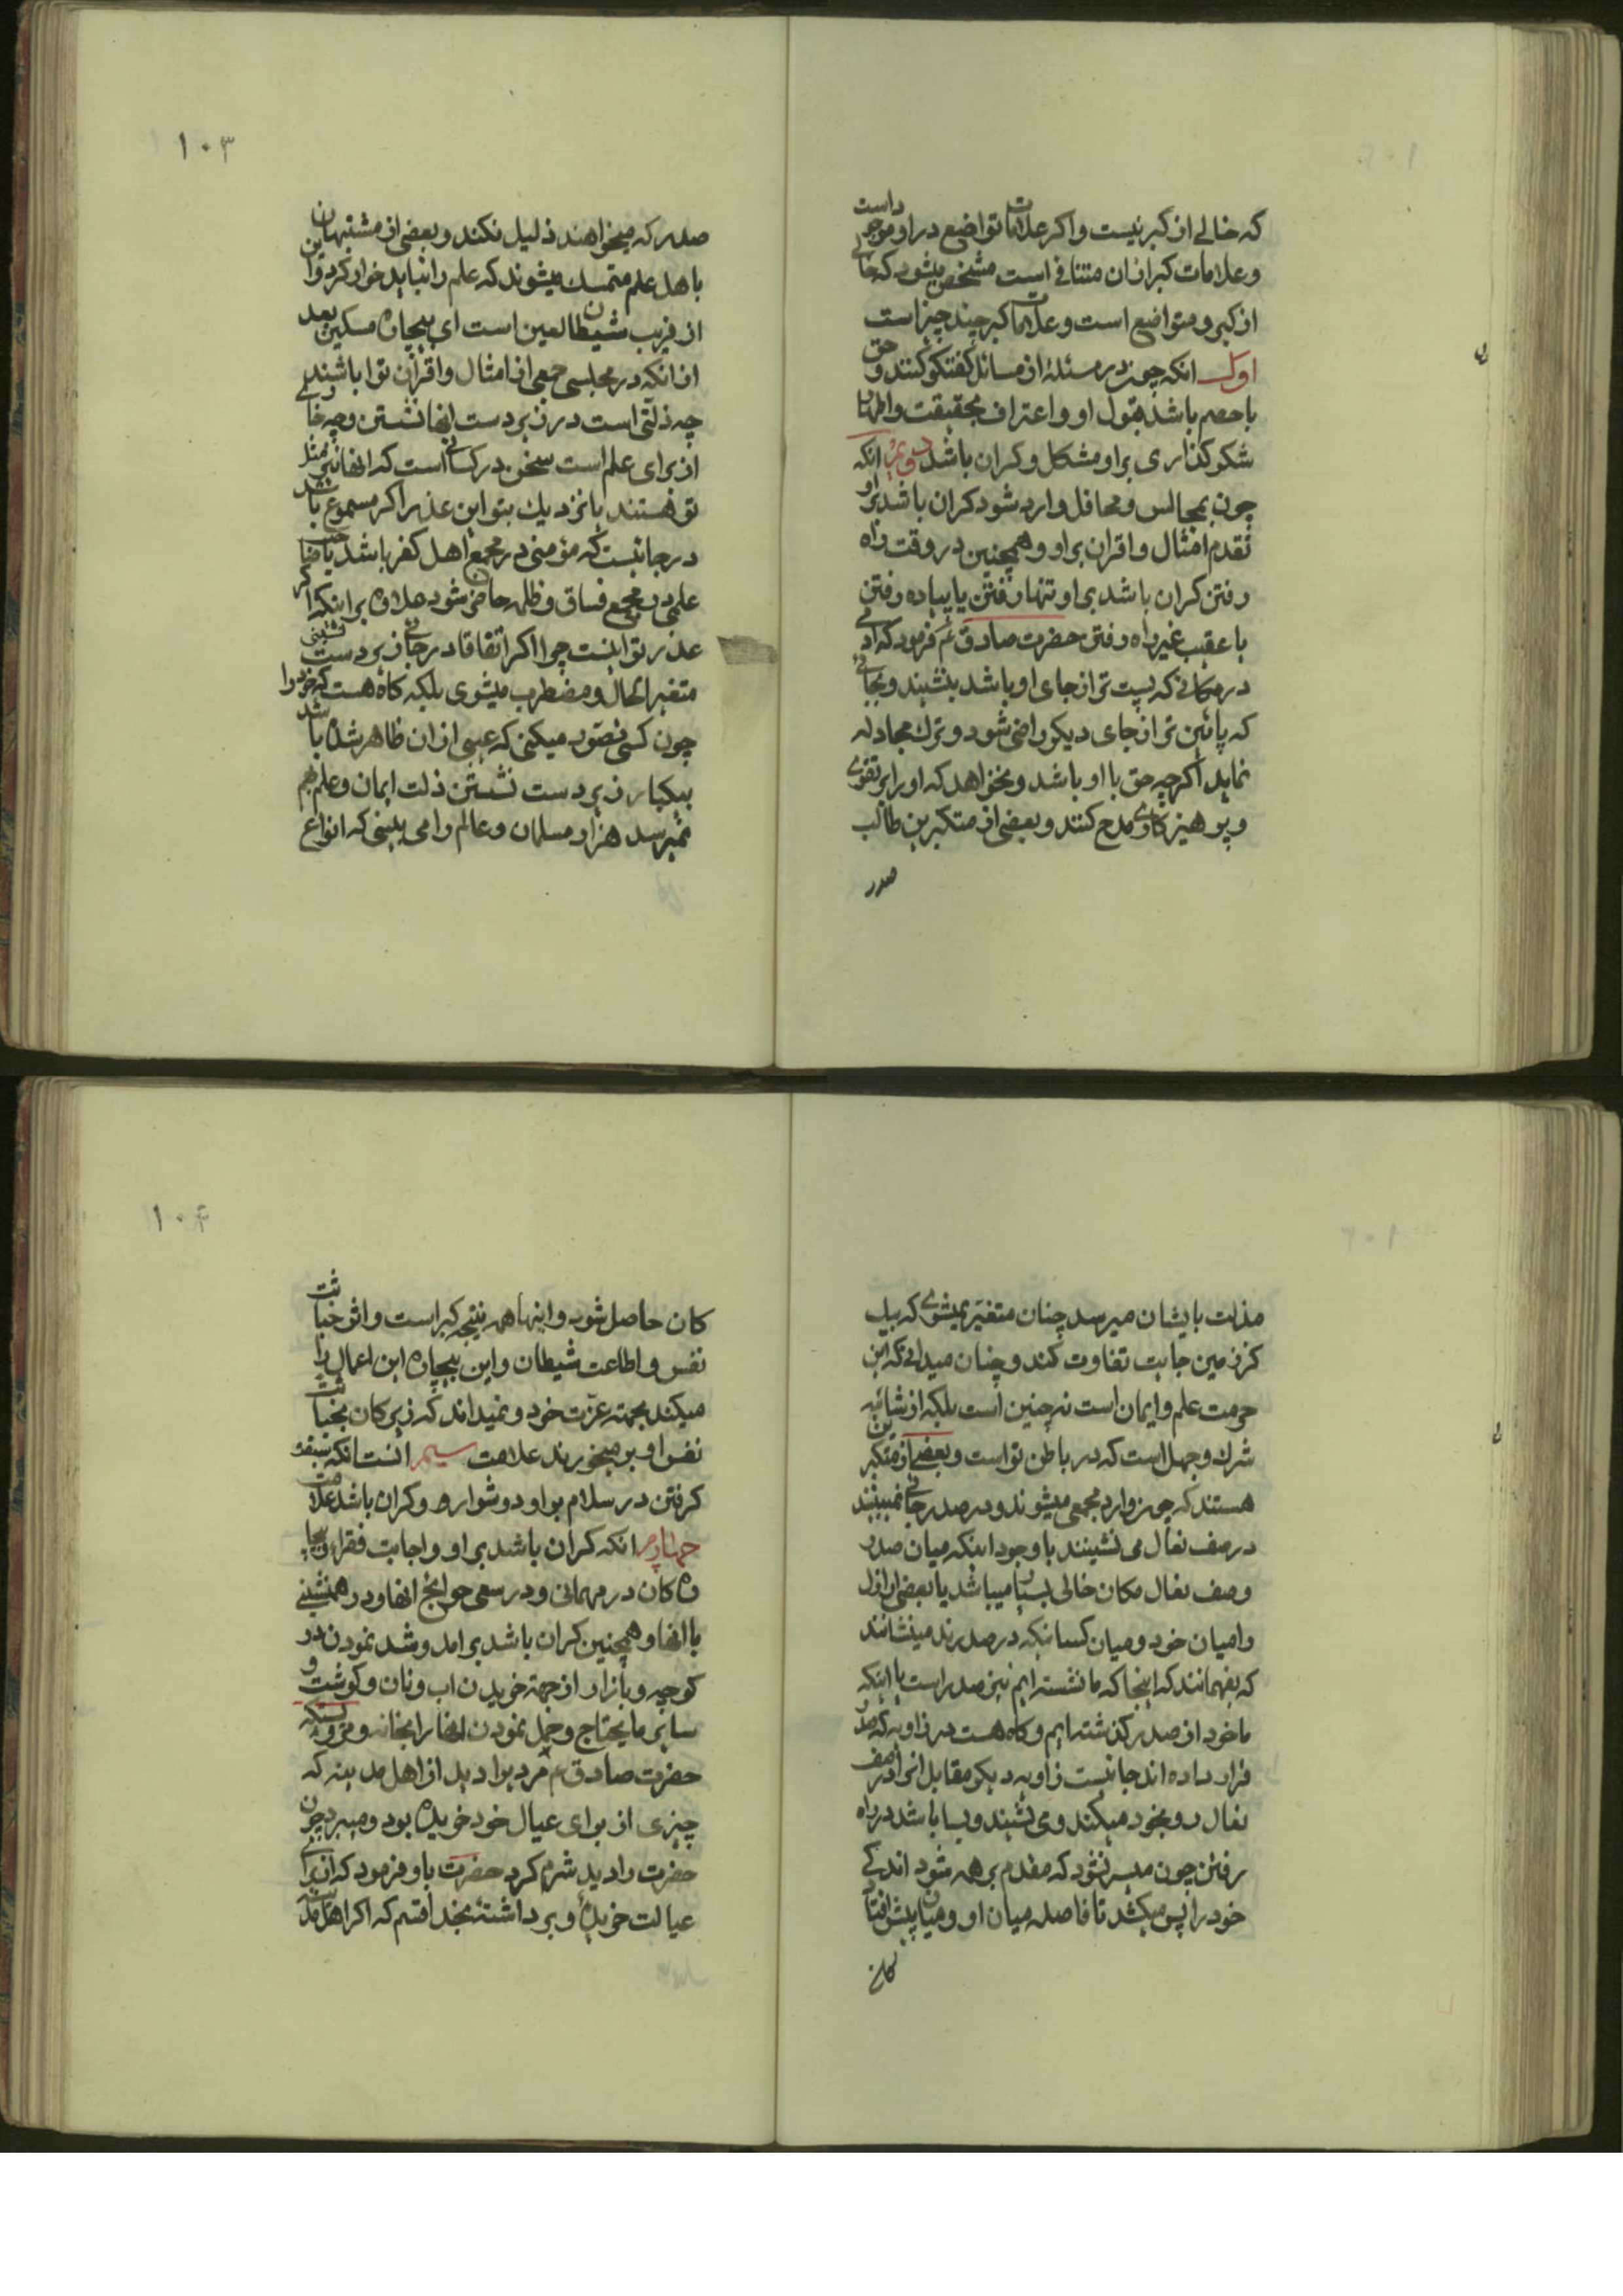 که خالی از کبر نیست و اکر علامات تواضع در او موجود است
و علامات کبر از ان منتفا فی است مشخص میشود که خالی
از کبر و متواضع است و علامات کبر چند چیز است
اول انکه چون در مسئلهٔ از مسائل کفتکو کنند و حق
با خصم باشد قبول او و اعتراف بحقیقت و اظهار
شکر کذاری بر او مشکل و کران باشد دویم انکه
چون بمجالس و محافل وارد شود کران باشد بر او
تقدم امثال و اقران بر او و همچنین در وقت راه
رفتن کران باشد بر او تنها رفتن یا پیاده رفتن
یا عقب غیر راه رفتن حضرت صادق ع فرمود که ادمی
در مکانی که پست تر از جای او باشد بنشیند و بجائی
که پائین تر از جای دیکر راضی شود و ترک مجادله
نماید اکرچه حق با او باشد و نخواهد که او را بر تقوی
و پرهیزکاری مدح کنند و بعضی از متکبرین طالب
صدر
۱۰۳
صدر که میخواهند ذلیل نکند و بعضی از مشتبهان
باهل علم متمسک میشوند که علم را نباید خوار کرد و این
از فریب شیطان لعین است ای بیچاره مسکین بعد
از انکه در مجلسی جمعی از امثال و اقران تو باشند
چه ذلتی است در زیر دست انها نشستن و چه خاری
از برای علم است سخن در کسانی است که انها نیز مثل
تو هستند یا نزدیک بتو این عذر اکر مسموع باشد
در جائیست که مؤمنی در مجمع اهل کفر باشد یا صاحب
علمی در مجمع فساق و ظلمه حاضر شود علاوه بر اینکه اکر
عذر تو اینست چرا اکر اتفاقا در جائی زیر دست نشینی
متغیر الحال و مضطرب میشوی بلکه کاه هست که خود را
چون کسی تصور میکنی که عیبی از ان ظاهر شده باشد
بیکبار زیر دست نشستن ذلت ایمان و علم بهم
نمیرسد هزار مسلمان و عالم را می بینی که انواع
مذلت بایشان میرسد چنان متغیر نمیشوی که بیک
کز زمین جایت تفاوت کند و چنان میدانی که این
حرمت علم و ایمان است نه چنین است بلکه از شائبه
شرک و جهل است که در باطن تو است و بعضی از متکبرین
هستند که چون وارد مجمعی میشوند و در صدر جائی نمیبینند
در صف نعال می نشینند با وجود اینکه میان صدر
و صف نعال مکان خالی بسیار میباشد یا بعضی از اراذل
را میان خود و میان کسانیکه در صدرند مینشانند
که بفهمانند که اینجا که ما نشسته ایم نیز صدر است یا اینکه
ما خود از صدر کذشته ایم و کاه هست در زاویه که صدر
قرار داده اند جا نیست زاویه دیکر مقابل انرا در صف
نعال رو بخود میکند و می نشیند و بسا باشد در راه
رفتن چون میسر نشود که مقدم بر همه شود اندکی
خود را پس میکشد تا فاصله میان او و میان پیش افتاد
کان
۱۰۴
کان حاصل شود و اینها همه نتیجه کبر است و اثر خباثت
نفس و اطاعت شیطان و این بیچاره این اعمال را
میکند بجهته عزت خود و نمیداند که زیرکان بخباثت
نفس او بر میخورند علامت سیم انست انکه سبقت
کرفتن در سلام بر او دشوار و کران باشد علامت
چهارم انکه کران باشد بر او واجابت فقراء و بیچا
ره کان در مهمانی و در سعی حوایج انها و در همنشینی
با انها و همچنین کران باشد بر امد و شد نمودن در
کوچه و بازار از جهة خریدن اب و نان و کوشت و
سایر ما یحتاج و حمل نمودن انها را بخانه
حضرت صادق ع مردیرا دید از اهل مدینه که
چیزی از برای عیال خود خریده بود و میبرد چون
حضرت را دید شرم کرد حضرت باو فرمود که از برای
عیالت خریده و بر داشتهٔ بخدا قسم که اکر اهل مدینه